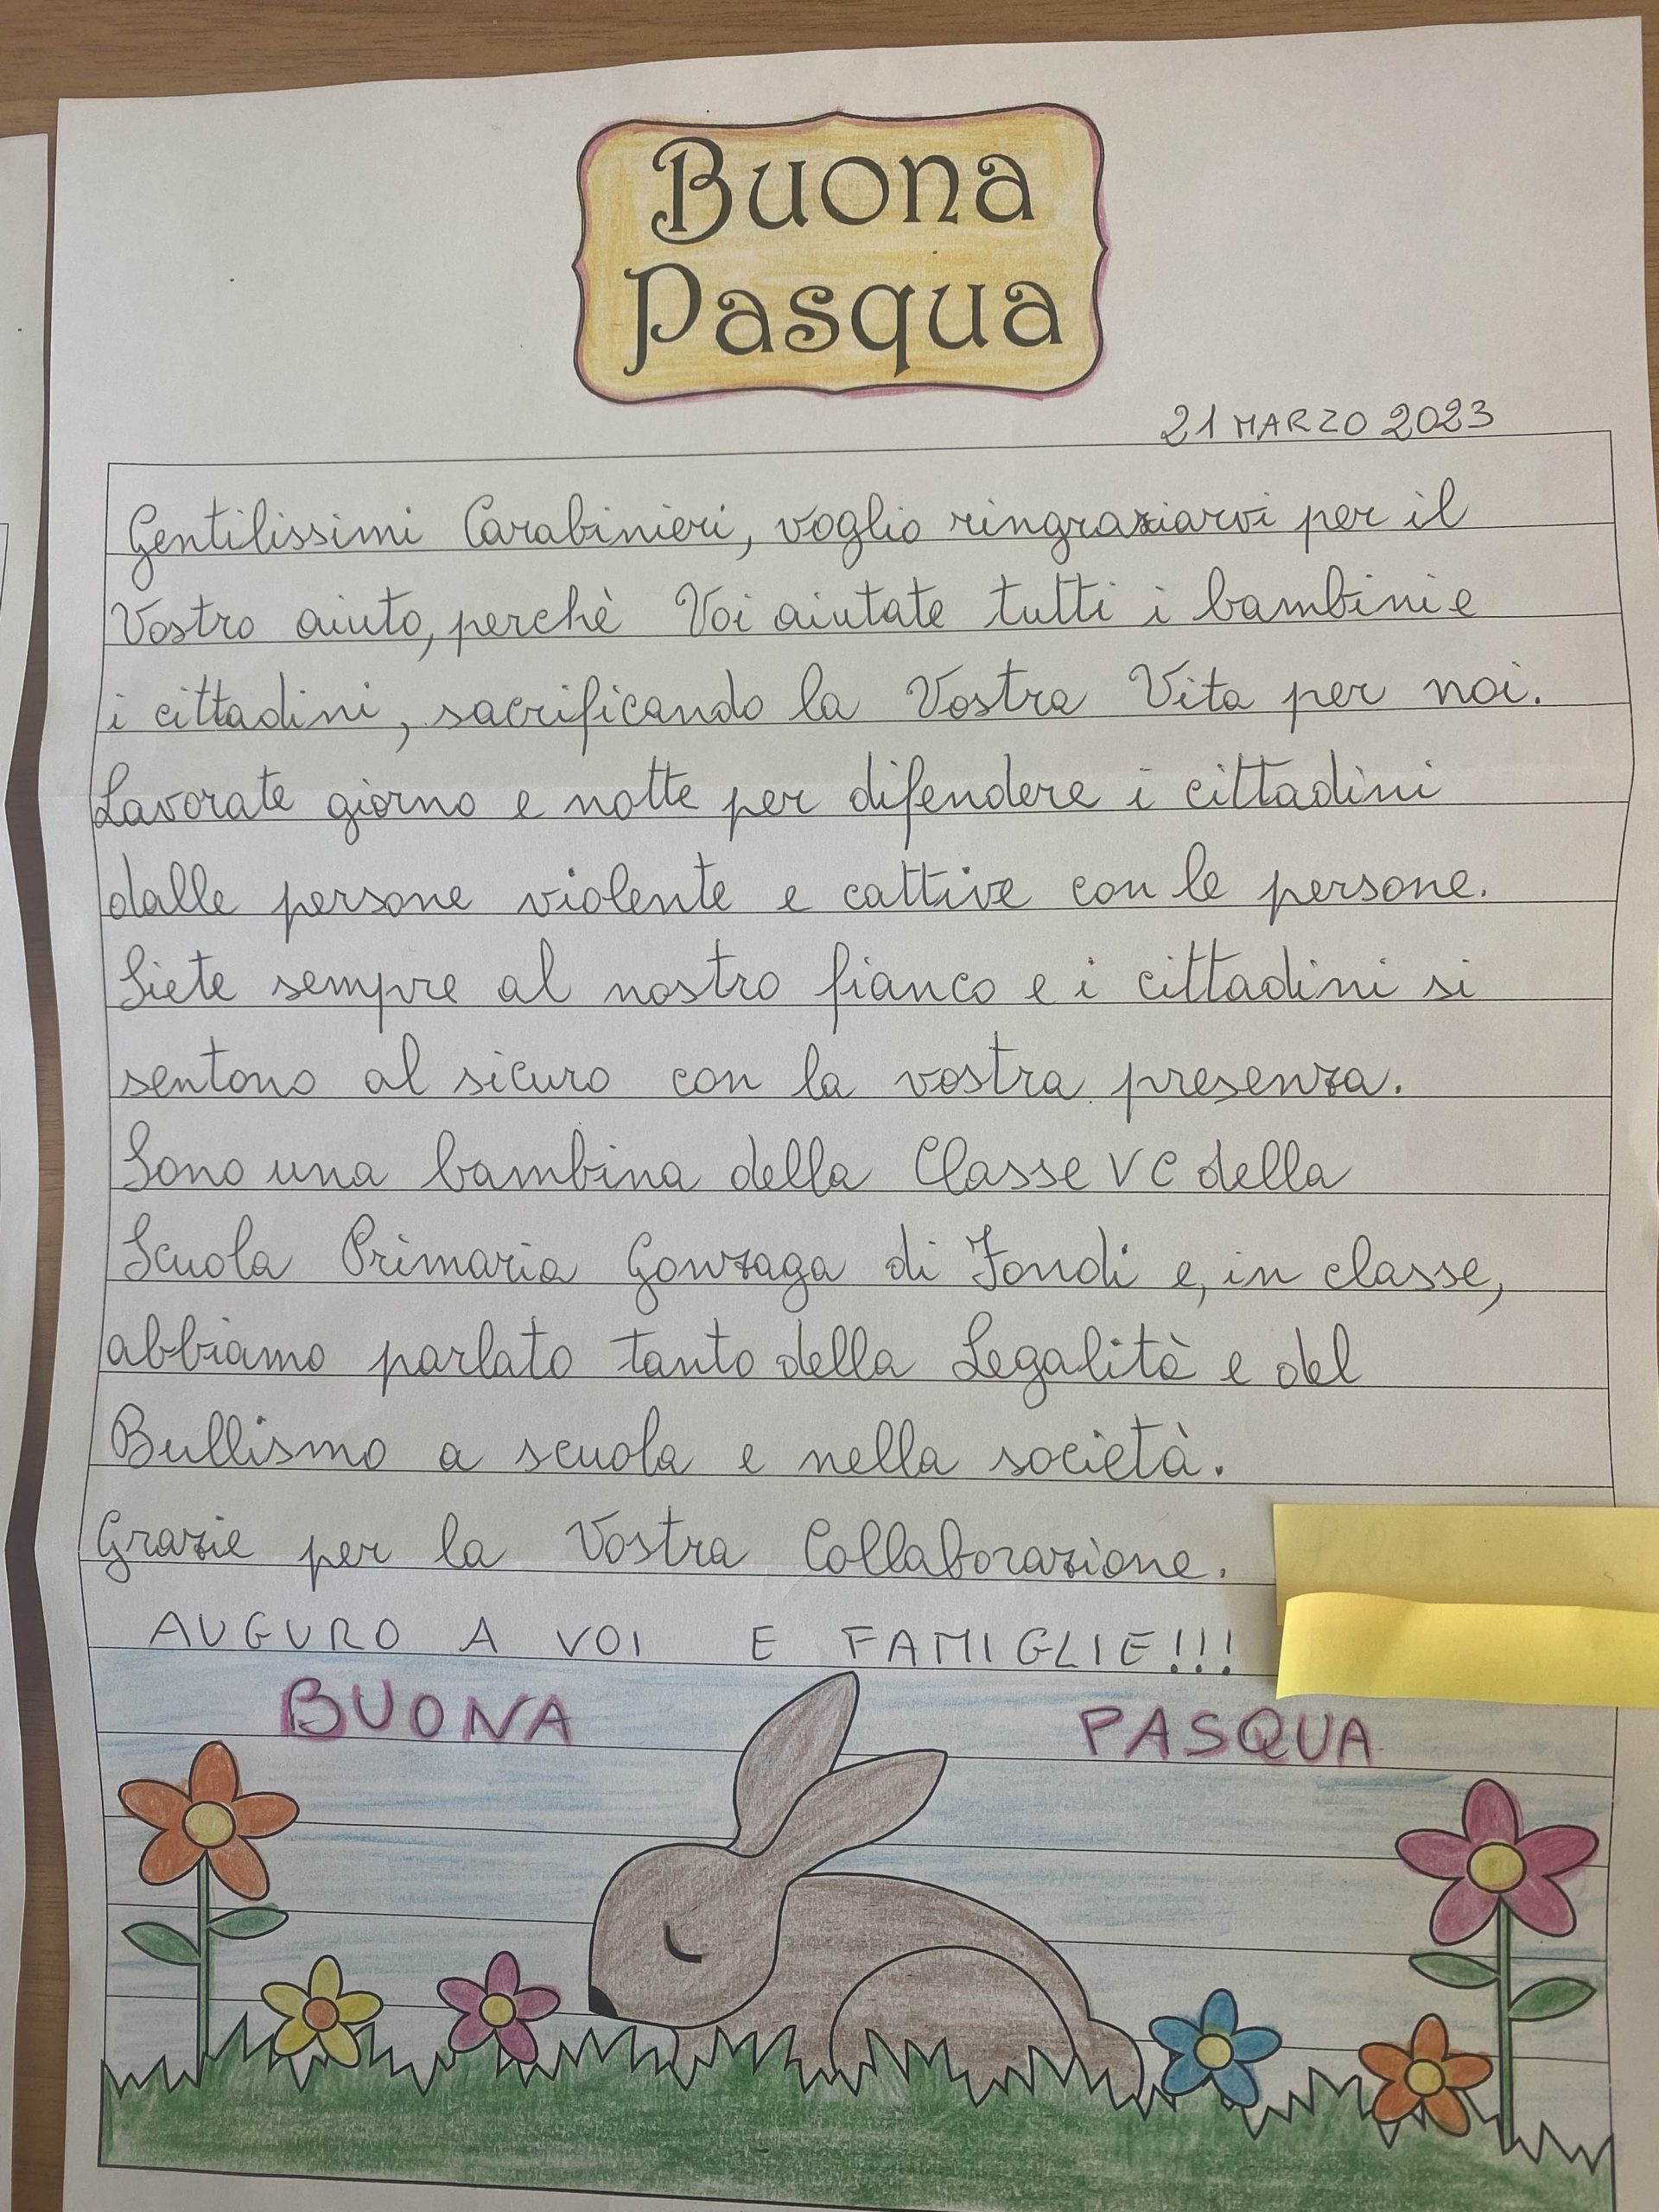 Buona
Pasqua
21 MARZO 2023
Gentilissimi Carabinieri, voglio ringraziarvi per il
Vostro aiuto, perchè Voi aiutate tutti i bambini e
i cittadini, sacrificando la Vostra Vita per noi.
Lavorate giorno e notte per difendere i cittadini
dalle persone violente e cattive con le persone.
Siete sempre al nostro fianco e i cittadini si
sentono al sicuro con la vostra presenza.
Sono una bambina della Classe V C della
Scuola Primaria Gonzaga di Fondi e, in classe,
abbiamo parlato tanto della Legalità e del
Bullismo a scuola e nella società.
Grazie per la Vostra Collaborazione.
AUGURO A VOI E FAMIGLIE!!!
BUONA PASQUA